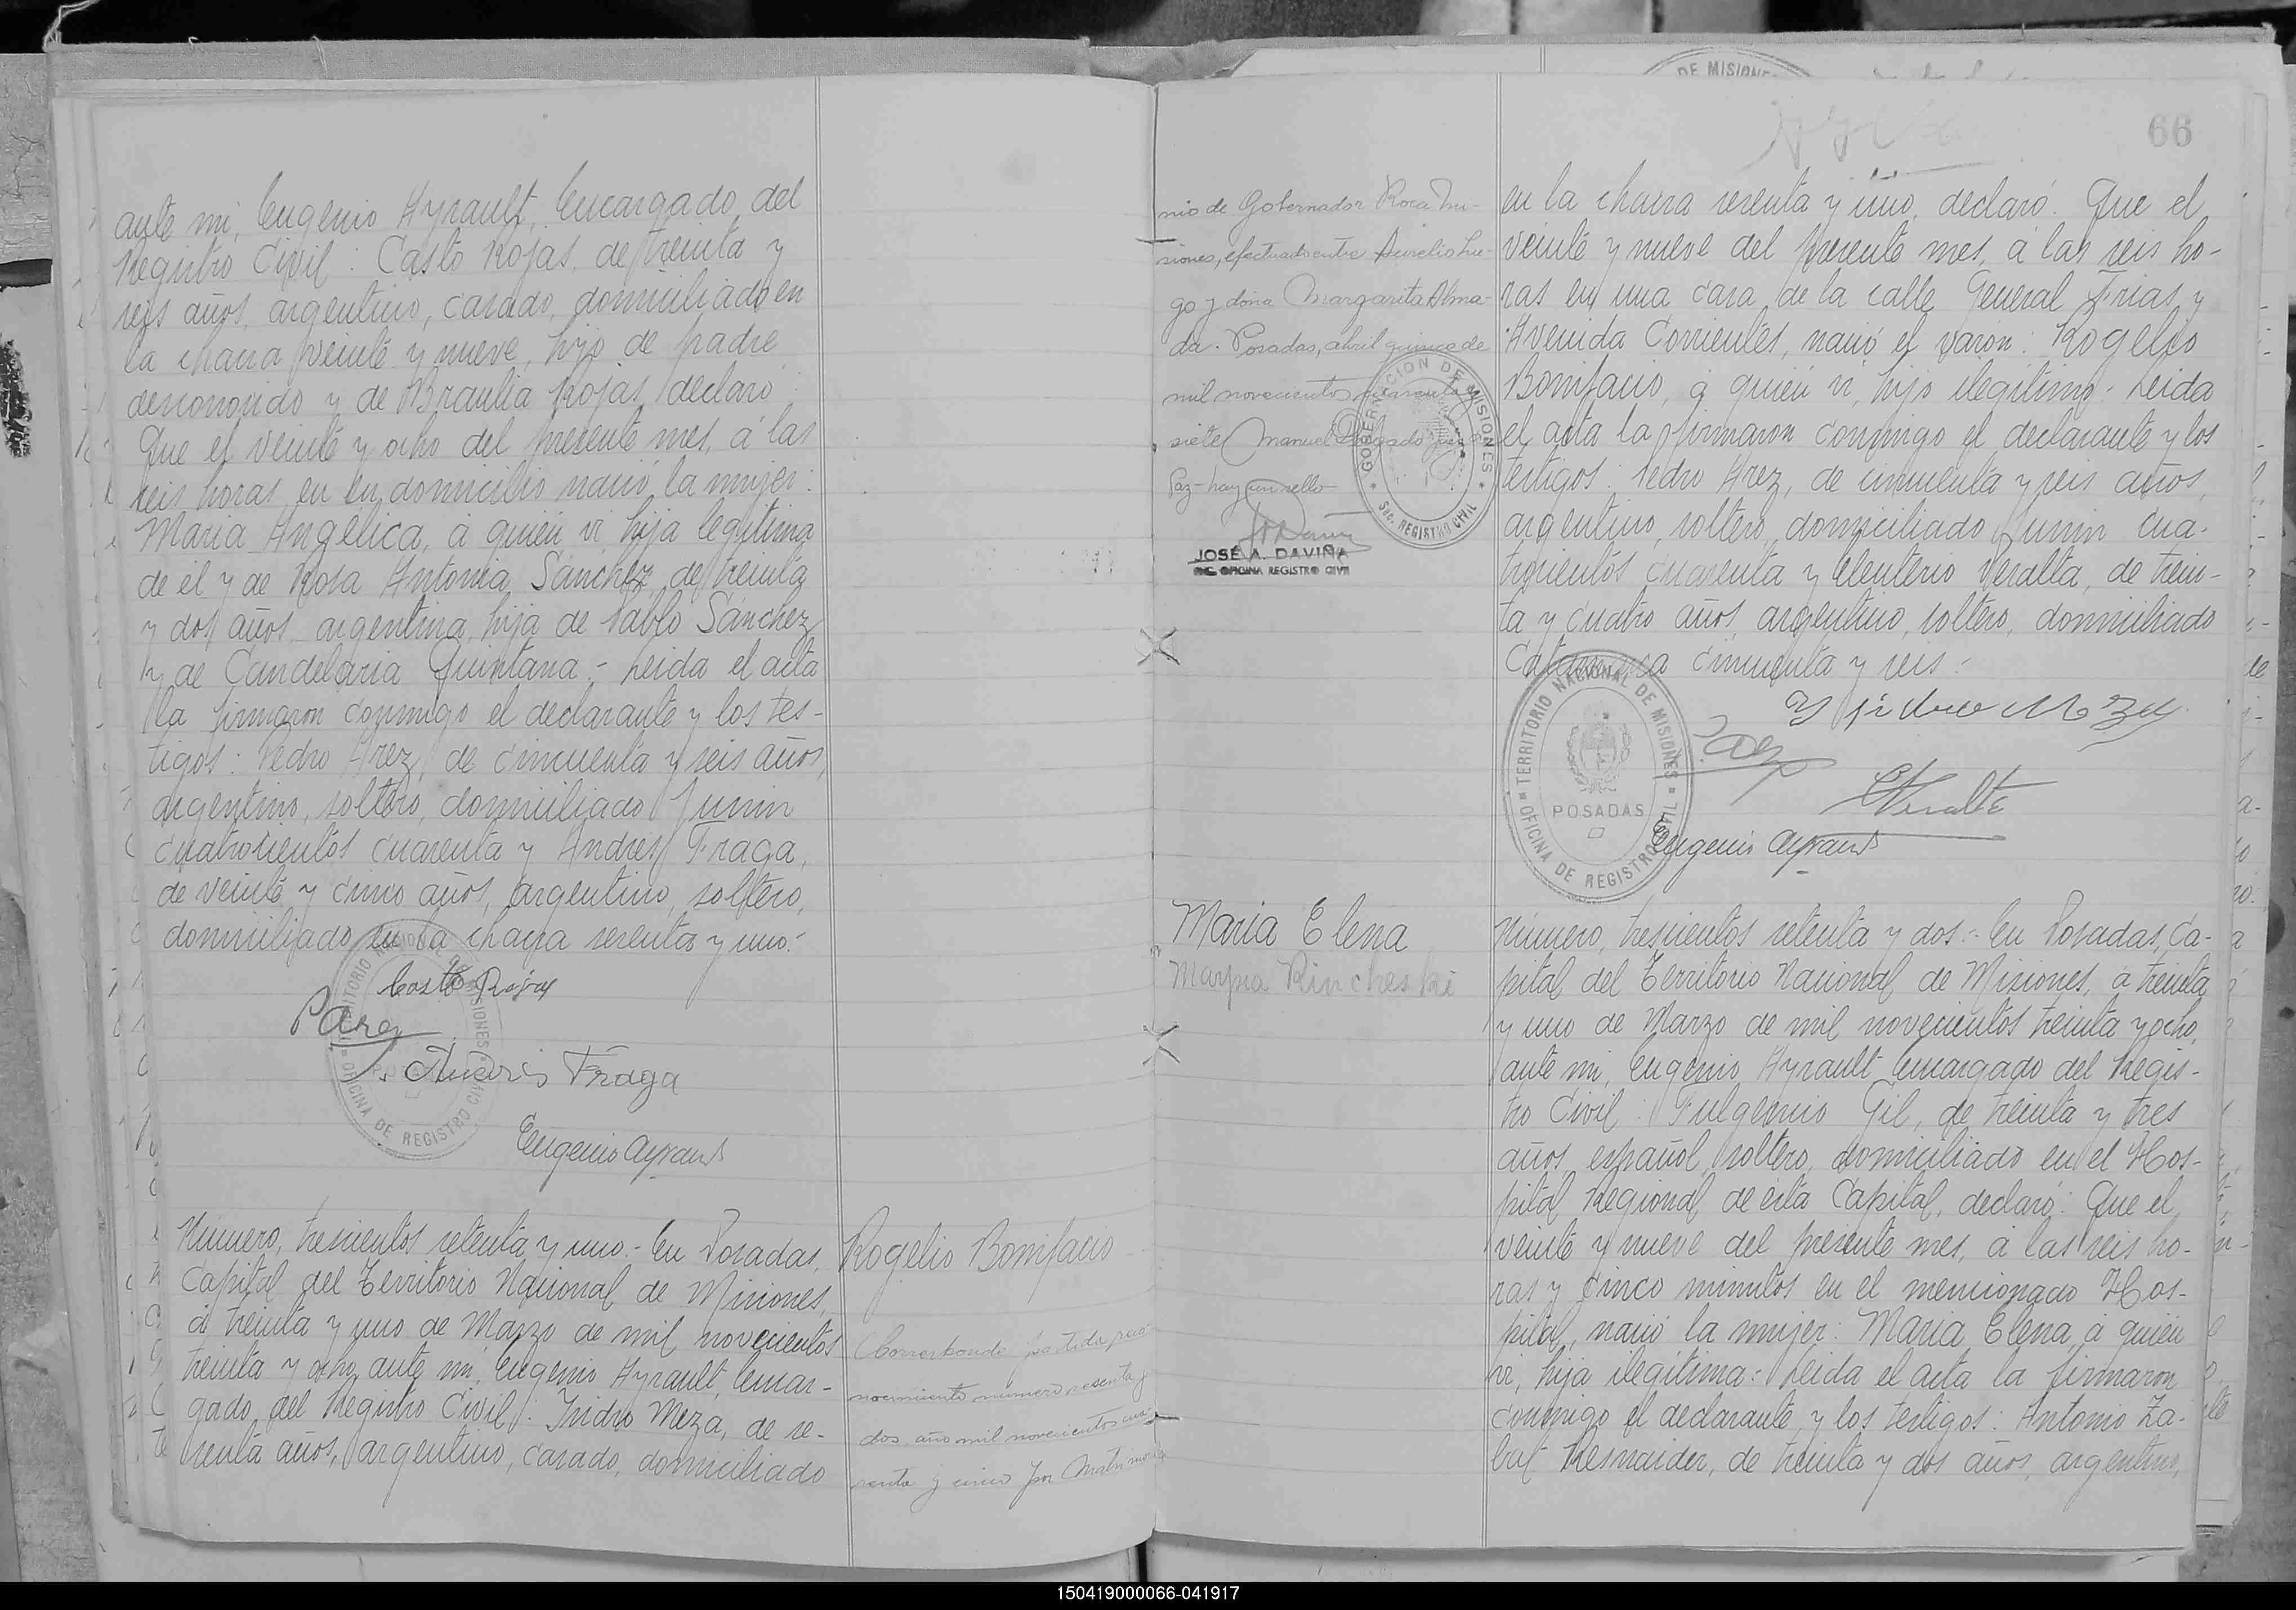 ante mi, Eugenio Ayrault, Encargado del
Registro Civil: Casto Rojas, de treinta y
seis años, argentino, casado, domiciliado en
la chacra veinte y nueve, hijo de padre
desconocido y de Braulia Rojas, declaró:
Que el veinte y ocho del presente mes, á las
seis horas, en su domicilio nació la mujer:
Maria Angélica, á quién vi, hija legítima
de él y de Rosa Antonia Sánchez, de treinta
y dos años, argentina, hija de Pablo Sánchez
y de Candelaria Quintana.- Leida el acta
la firmaron conmigo el declarante y los tes-
tigos: Pedro Arez, de cincuenta y seis años,
argentino, soltero, domiciliado Junin
cuatrocientos cuarenta y Andres Fraga,
de veinte y cinco años, argentino, soltero,
domiciliado en la chacra sesenta y uno:-
Casto Rojas
P Arez
Andrés Fraga
Eugenio Ayrault
Número, trescientos setenta y uno.- En Posadas,
Capital del Territorio Nacional de Misiones,
á treinta y uno de Marzo de mil novecientos
treinta y ocho, ante mi, Eugenio Ayrault, Encar-
gado del Registro Civil: Isidro Meza, de se-
senta años, argentino, casado, domiciliado
Rogelio Bonifacio
Corresponde partida reco-
nocimiento numero sesenta y
dos, año mil novecientos cua-
renta y cinco por Matrimo-
66
DE MISIONES
nio de Gobernador Roca Mi-
siones, efectuado entre Aurelio Lu-
go y doña Margarita Alma-
da. Posadas, abril quince de
mil novecientos cuarenta y
siete Manuel Delgado Juez
Paz - hay un sello -
GOBERNACION DE MISIONES
Sec. REGISTRO CIVIL
JOSÉ A. DAVIÑA
ENC. OFICINA REGISTRO CIVIL
en la chacra sesenta y uno, declaró: Que el
veinte y nueve del presente mes, á las seis ho-
ras en una casa de la calle General Frias y
Avenida Corrientes, nació el varon: Rogelio
Bonifacio, á quién vi, hijo ilegítimo: Leida
el acta la firmaron conmigo el declarante y los
testigos: Pedro Arez, de cincuenta y seis años,
argentino, soltero, domiciliado Junin cua-
trocientos cuarenta y Eleuterio Veralta, de trein-
ta y cuatro años, argentino, soltero, domiciliado
Catamarca cincuenta y seis:-
Ysidro Meza
P Arez
E Veralta
Eugenio Ayrault
TERRITORIO NACIONAL DE MISIONES
POSADAS
OFICINA DE REGISTRO CIVIL
Maria Elena
Mayna Rincheski
Número, trescientos setenta y dos:- En Posadas, Ca-
pital del Territorio Nacional de Misiones, á treinta
y uno de Marzo de mil novecientos treinta y ocho,
ante mi, Eugenio Ayrault, Encargado del Regis-
tro Civil: Fulgencio Gil, de treinta y tres
años, español, soltero, domiciliado en el Hos-
pital Regional de ésta Capital, declaró: Que el
veinte y nueve del presente mes, á las seis ho-
ras y cinco minutos en el mencionado Hos-
pital, nació la mujer: Maria Elena, á quién
vi, hija ilegítima: Leida el acta la firmaron
conmigo el declarante y los testigos: Antonio Za-
bat Kesnaider, de treinta y dos años, argentino,
150419000066-041917